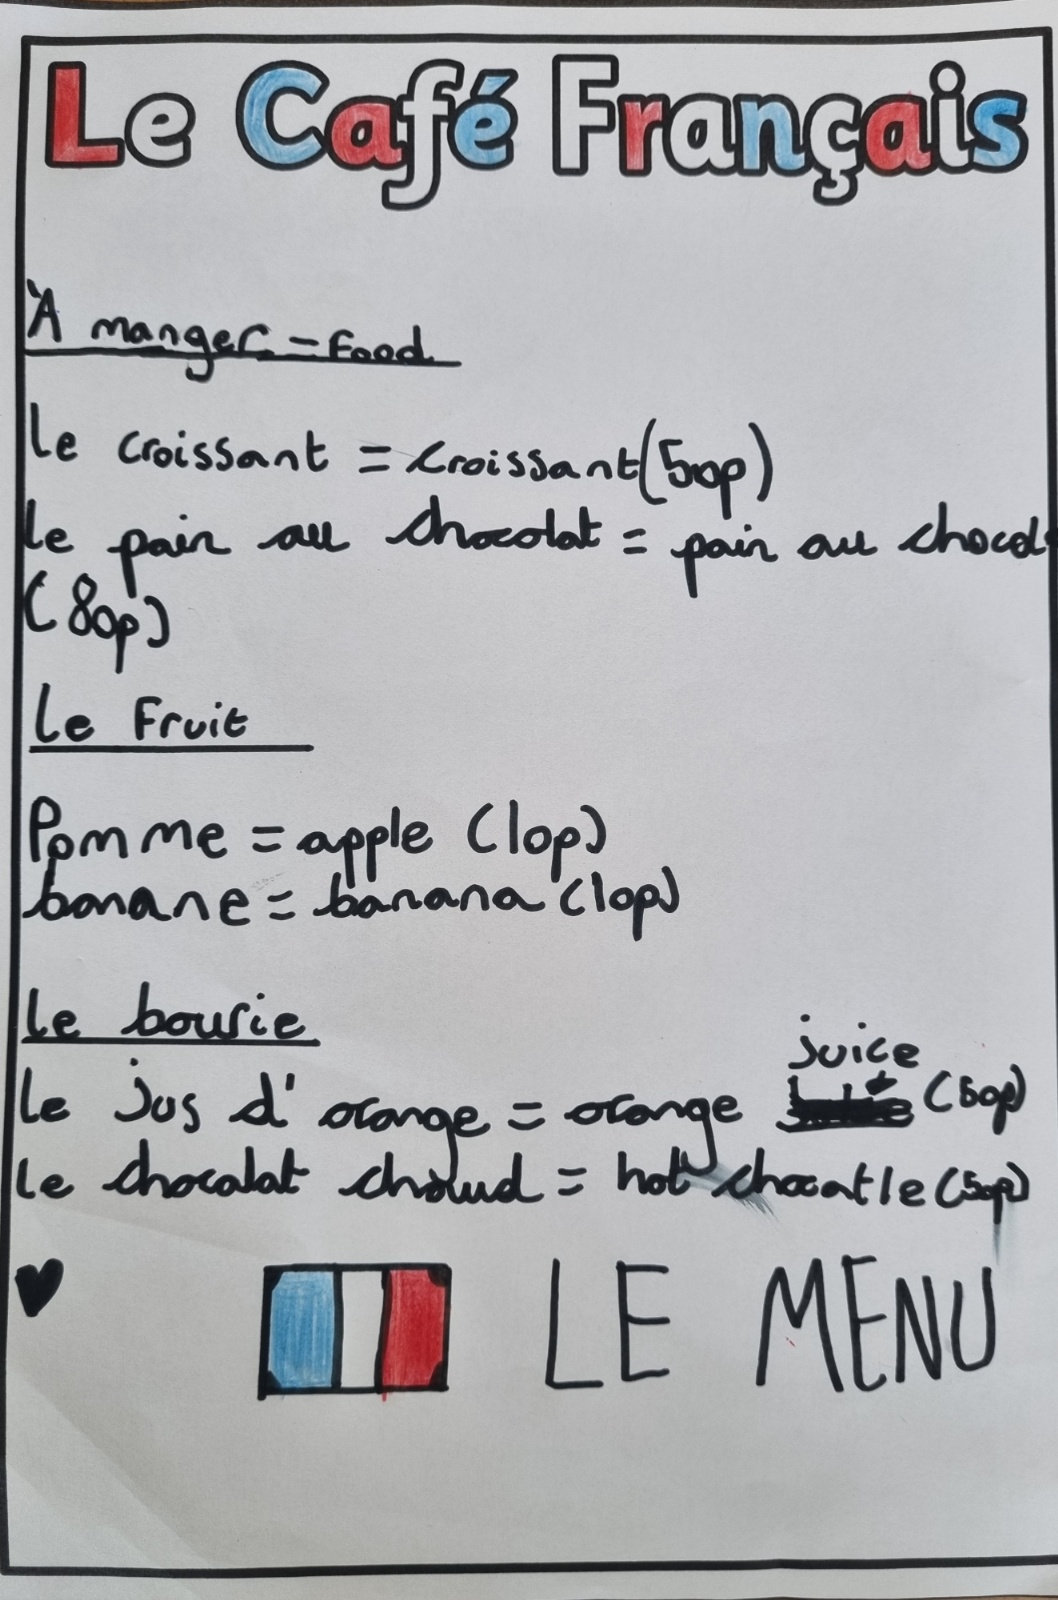 Le Café Français
À manger - Food
le croissant = croissant (50p)
le pain au chocolat = pain au chocol
(80p)
le Fruit
Pomme = apple (10p)
banane = banana (10p)
le bousie
juice
le jus d' orange = orange (50p)
le chocalat choud = hot chocatle (50p)
LE MENU